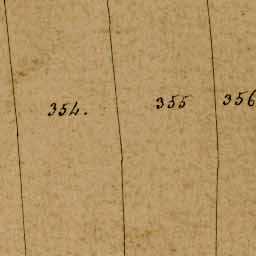 354. 355 356